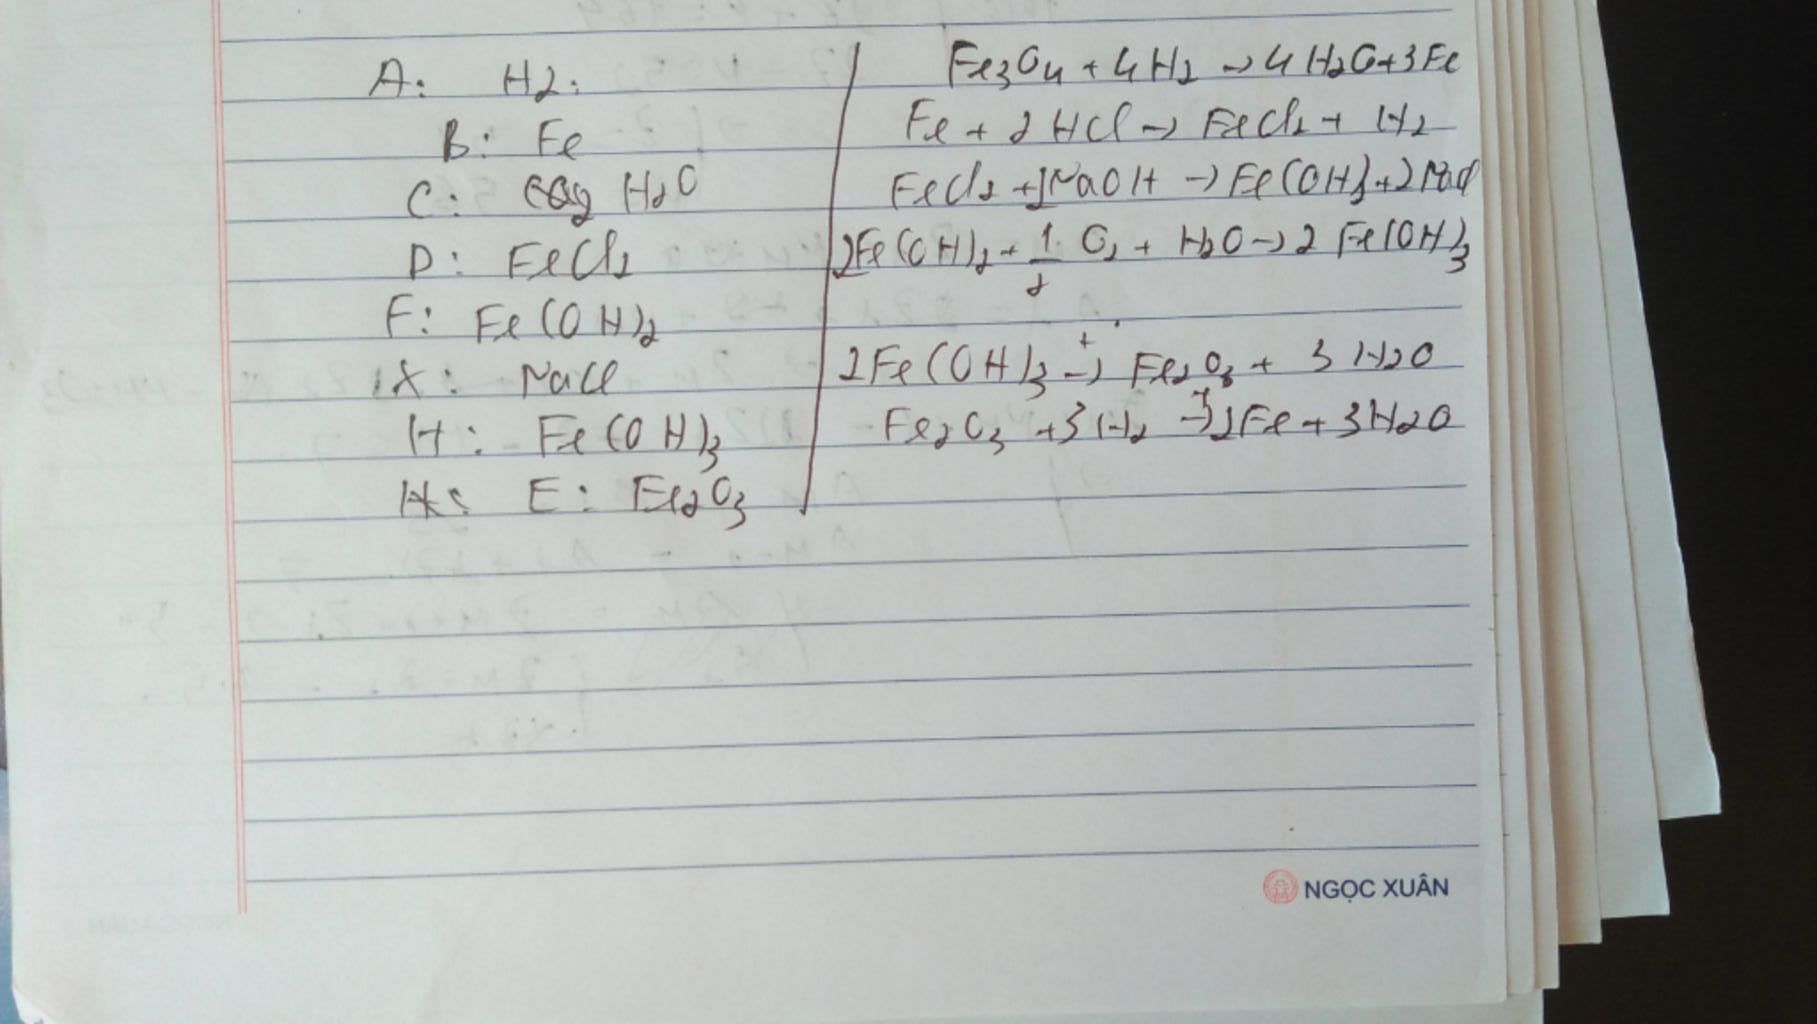 A: H2.
B: Fe
C: H2O
D: FeCl2
F: Fe(OH)2
X: NaCl
H: Fe(OH)3
E: Fe2O3
Fe3O4 + 4H2 → 4H2O + 3Fe
Fe + 2HCl → FeCl2 + H2
FeCl2 + 2NaOH → Fe(OH)2 + 2NaCl
2Fe(OH)2 + 1/2 O2 + H2O → 2Fe(OH)3
2Fe(OH)3 → Fe2O3 + 3H2O
Fe2O3 + 3H2 → 2Fe + 3H2O
NGỌC XUÂN